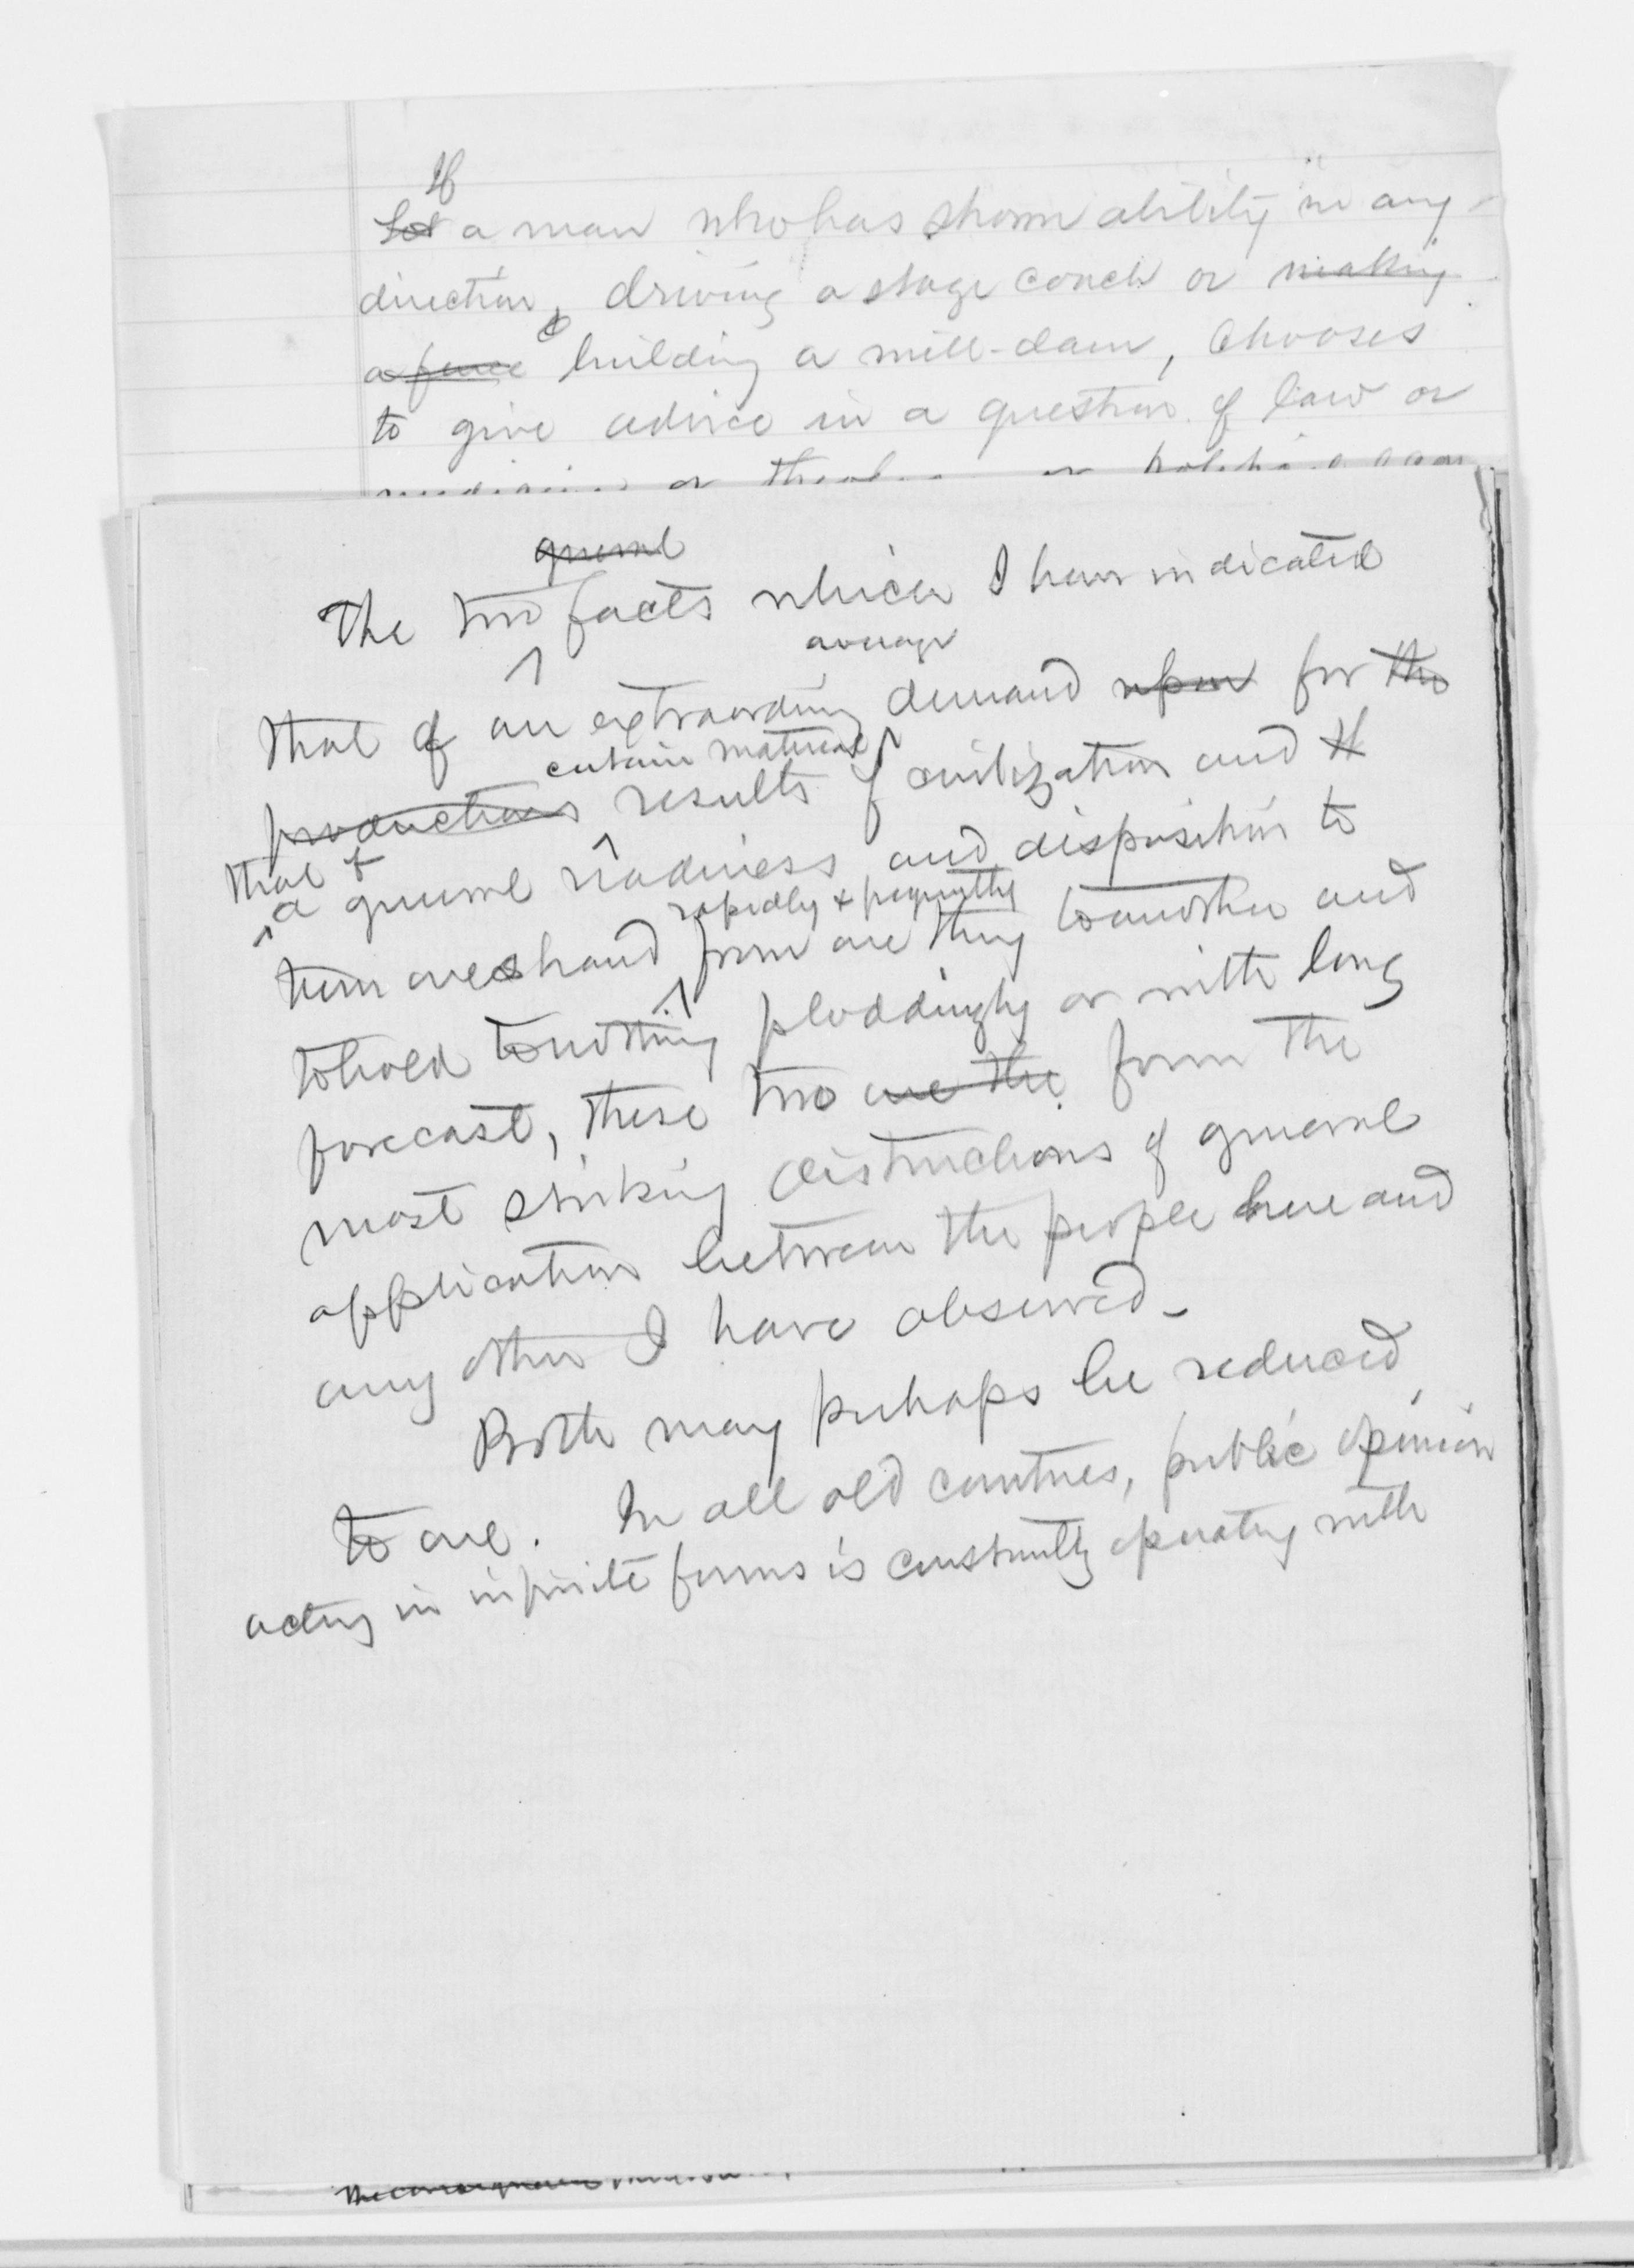 If
Let a man who has shown ability in any
direction, driving a stage coach or making
a fence & building a mill-dam, chooses
to give advice in a question of law or
or
general
The two facts which I have indicated
average
that of an extraordinary demand upon for the
certain material
productions results of civilization and th
that of
a general readiness and disposition to
rapidly & frequently
turn one's hand from one thing to another and
to hold to nothing ploddingly or with long
forecast, these two are the form the
most striking distinctions of general
application between the people here and
any other I have observed_
Both may perhaps be reduced
to one. In all old countries, public opinion
acting in infinite forms is constantly operating with